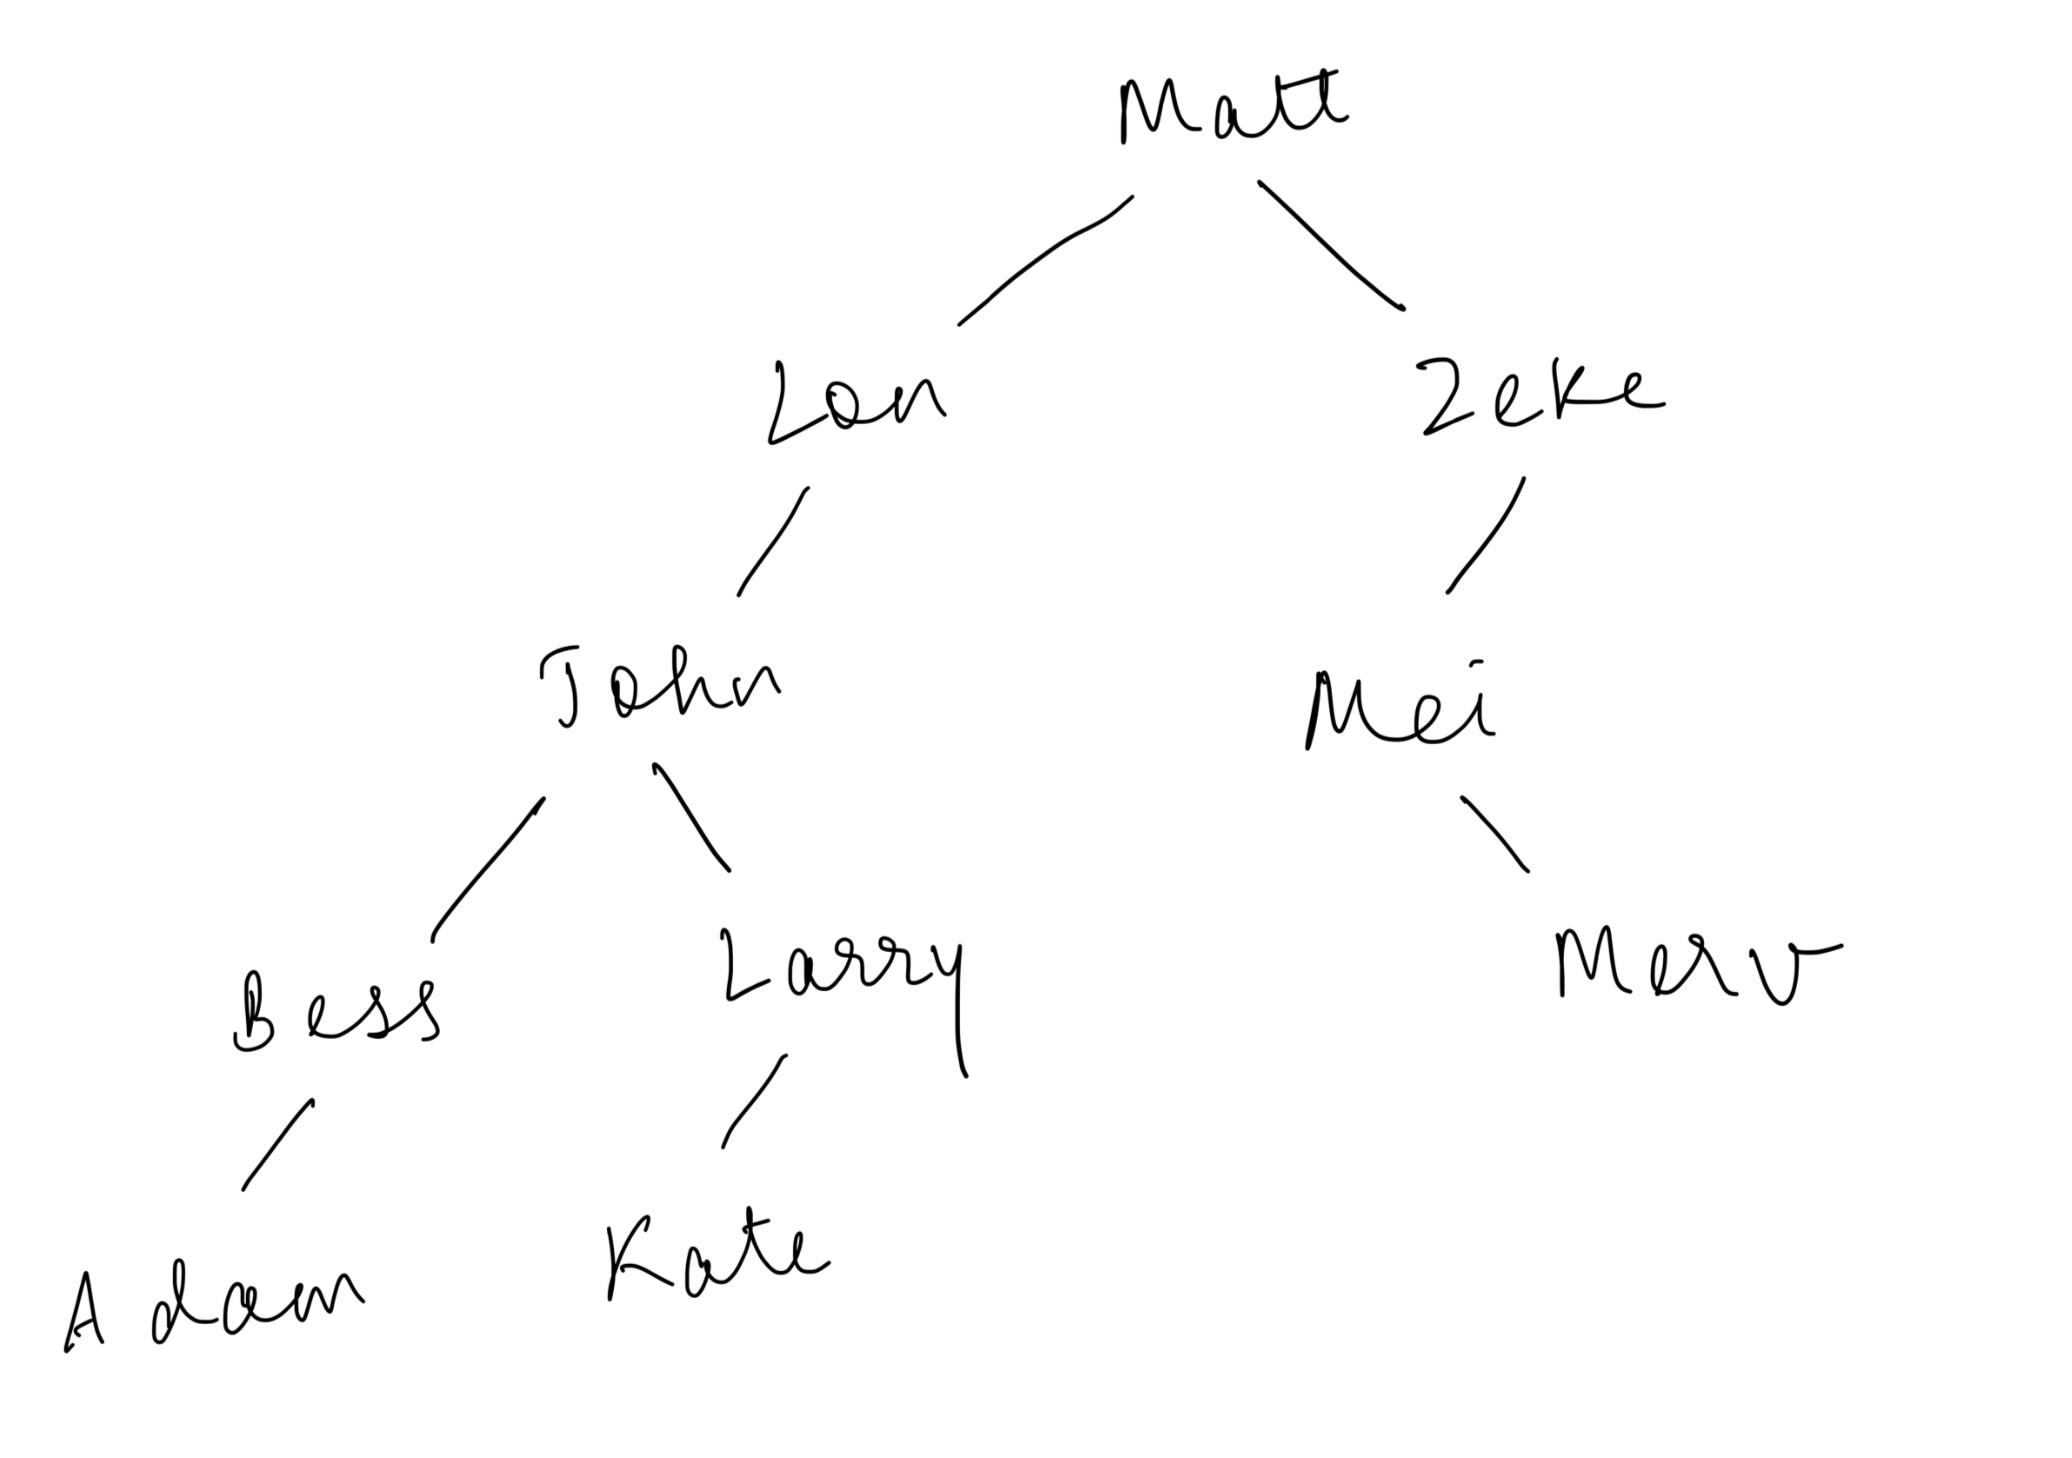 Matt
Lon
Zeke
John
Mei
Bess
Larry
Merv
Adam
Kate